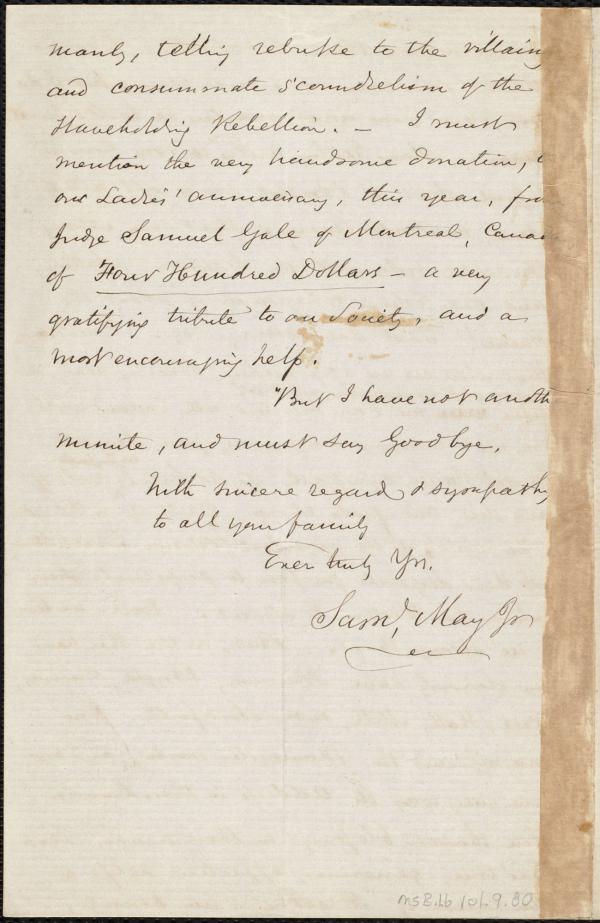 manly, telling rebuke to the villainy
and consummate scoundrelism of the
Slaveholding Rebellion. — I must
mention the very handsome donation,
our Ladies' anniversary, this year, from
Judge Samuel Gale of Montreal, Canada
of Four Hundred Dollars — a very
gratifying tribute to our Society, and a
most encouraging help.
But I have not anoth
minute, and must say Goodbye.
With sincere regard & sympathy
to all your family
Ever truly Yrs.
Saml. May Jr
Ms B.1.6 vol. 9. 80